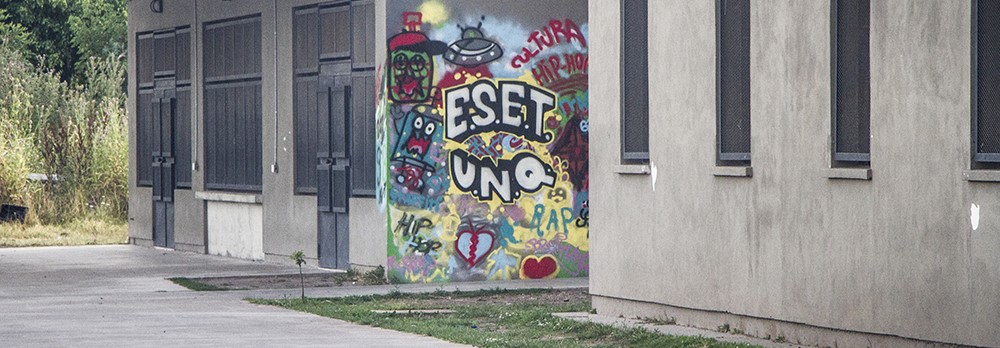 CULTURA
HIP-HOP
E.S.E.T.
U.N.Q.
RAP
HIP
HOP